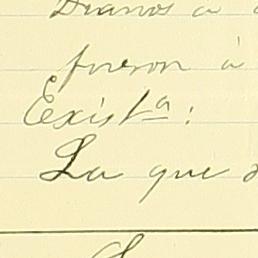 Dianos a
fueron á
Exist.ª:
La que